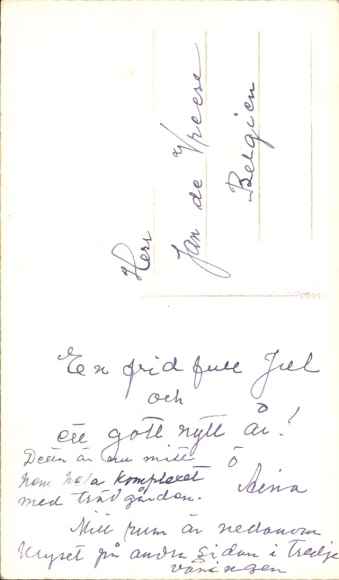 Herr
Jan de Vreese
Belgien
En fridfull Jul
och
ett gott nytt år!
önskar
Detta är nu mitt
hem hela komplexet
med trädgården.
Aina
Mitt rum är nedanom
krysset på andra sidan i tredje
våningen